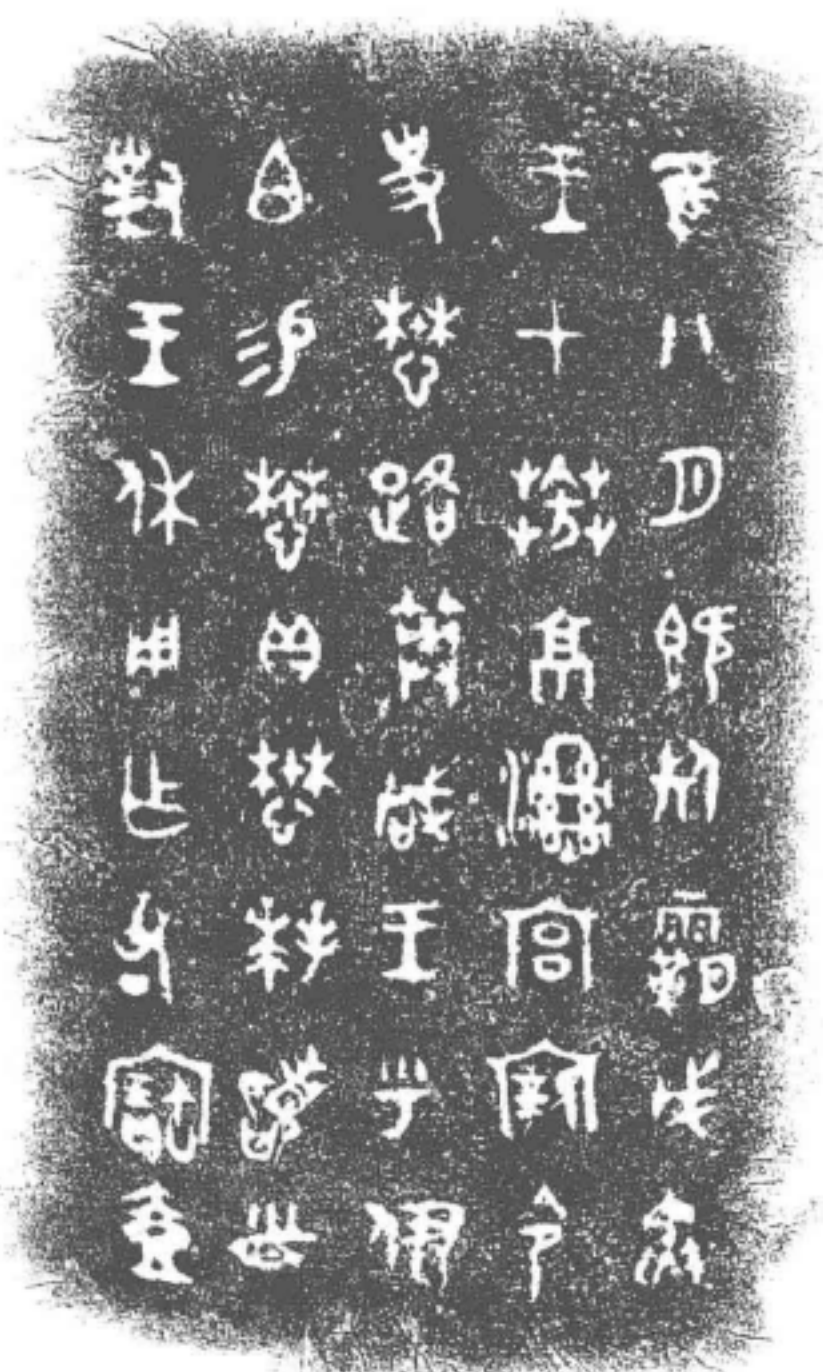 隹八月既死霸戊寅
王才𦭘京溼宮寴令
史懋路筭咸王乎伊
白易懋貝懋拜䭫首
對王休用乍父丁寶壺